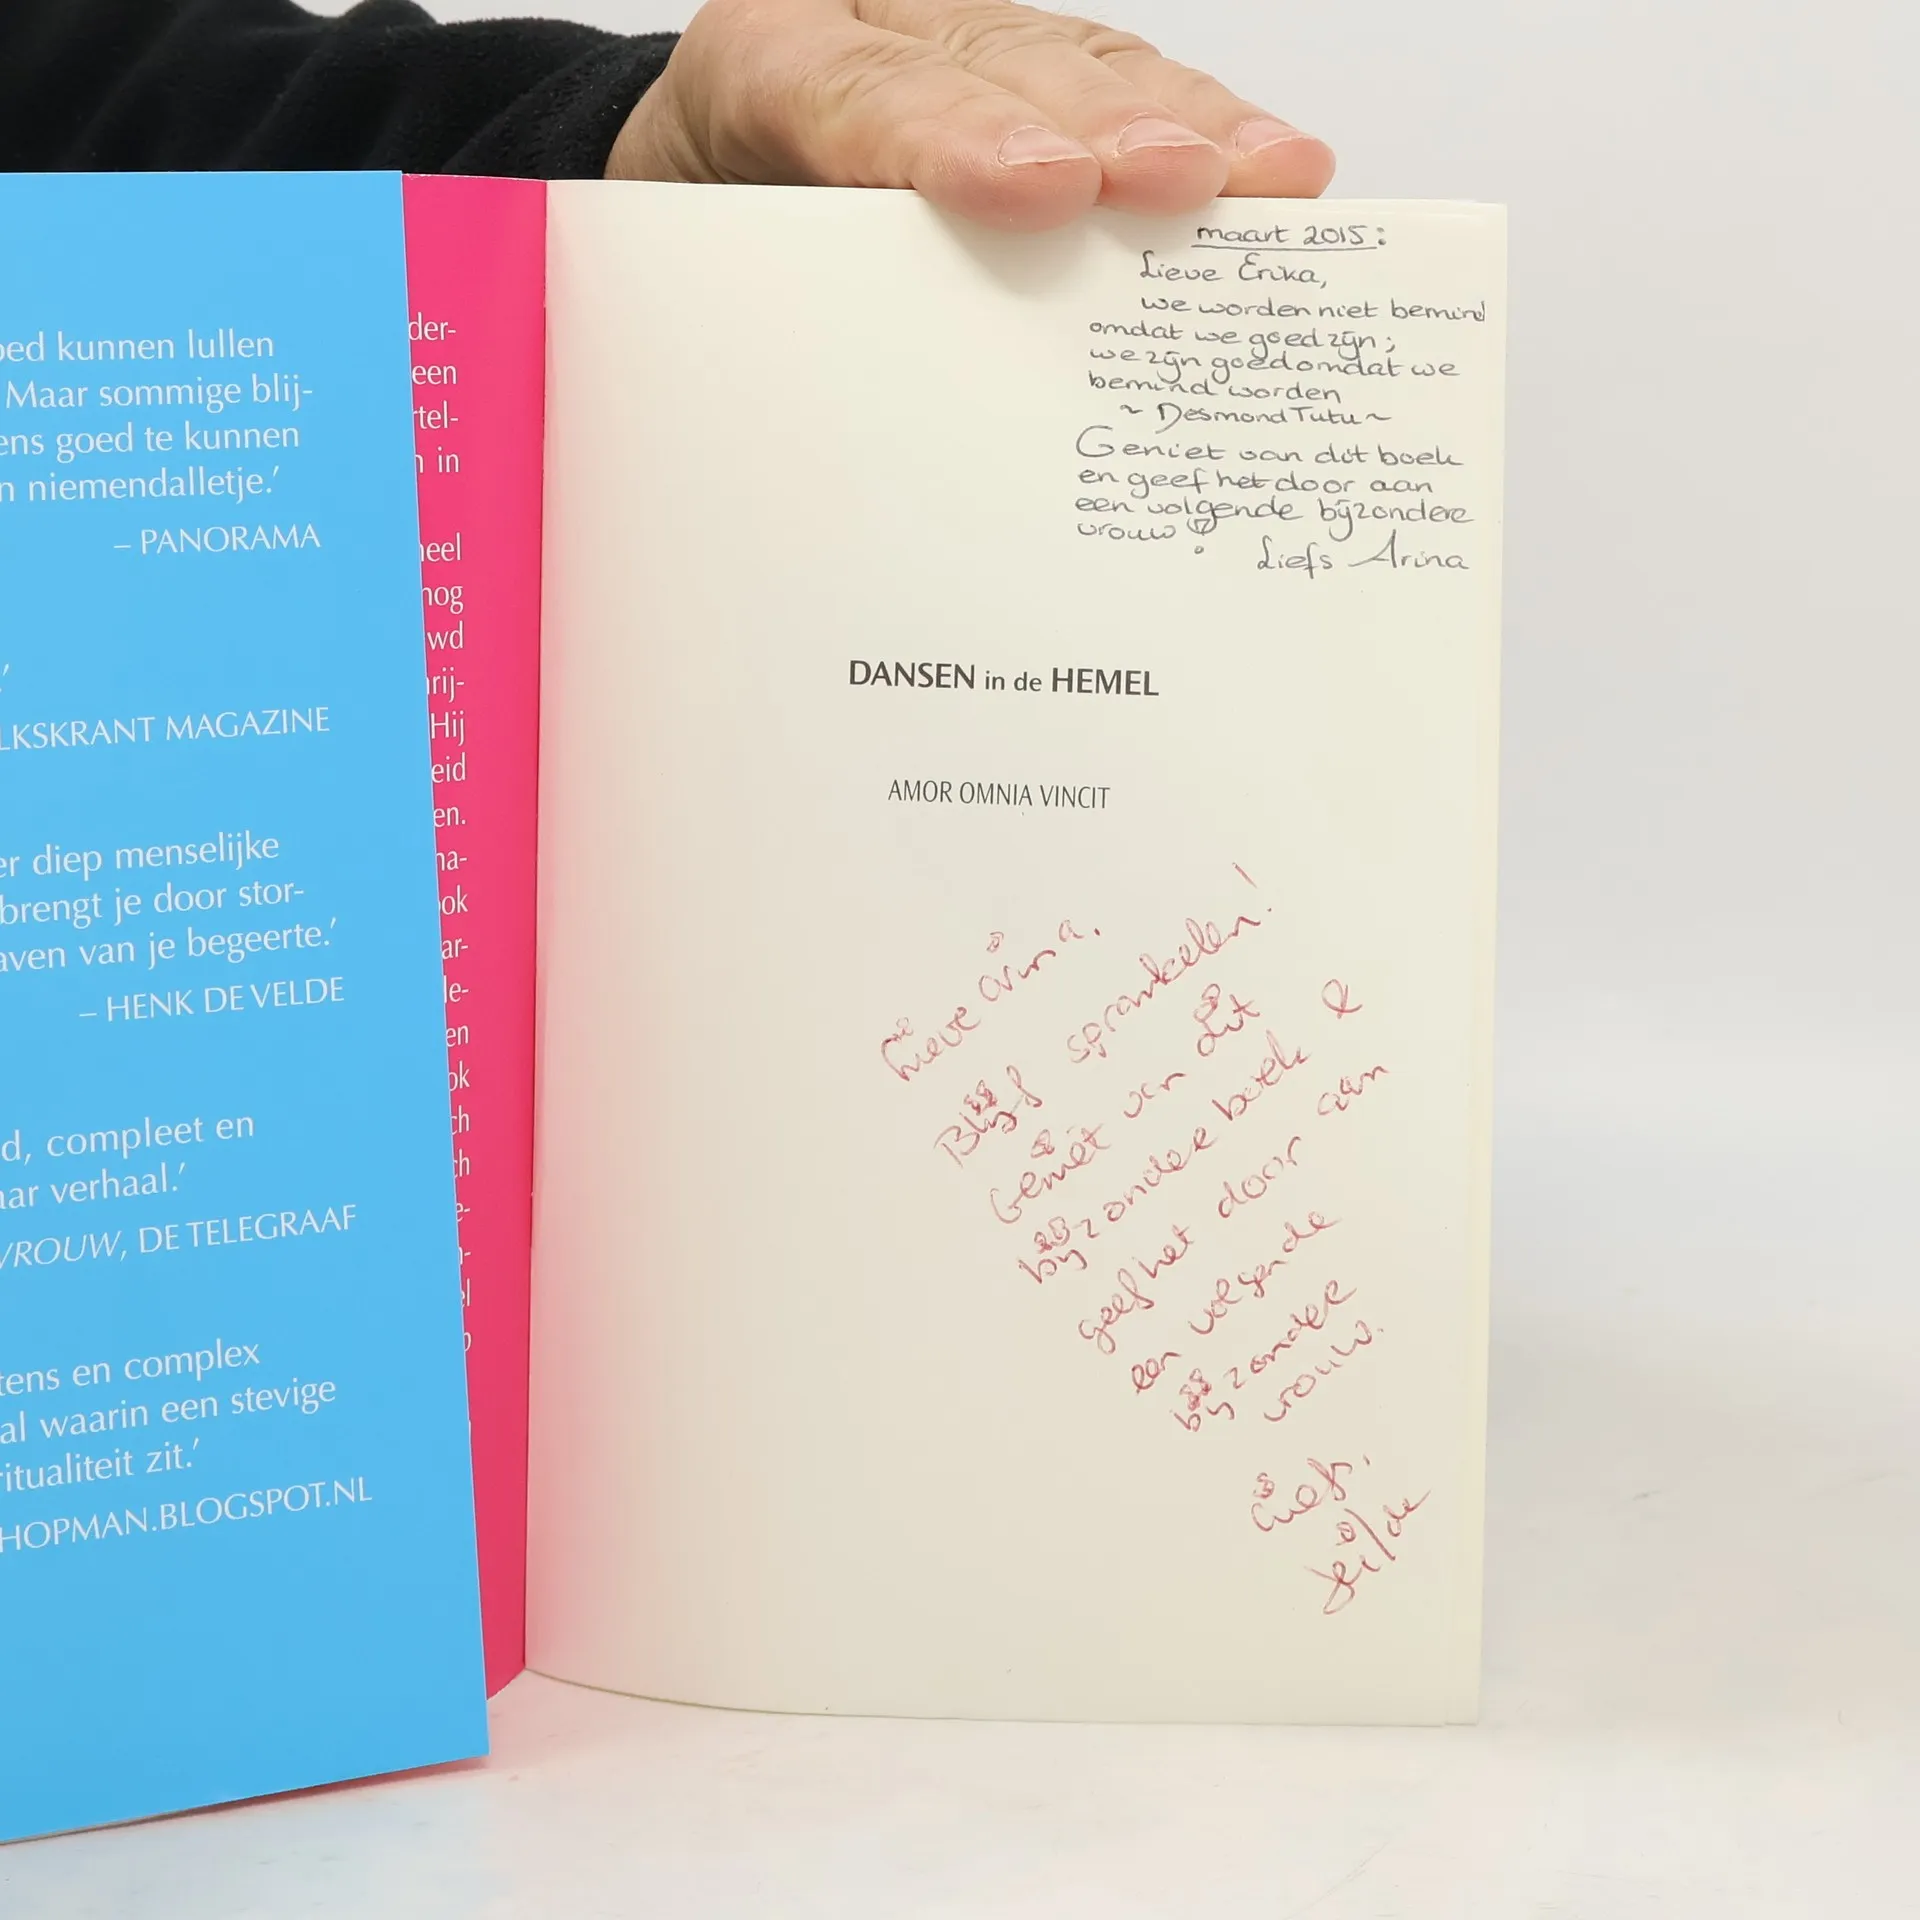 oed kunnen lullen
Maar sommige blij-
ens goed te kunnen
n niemendalletje.'
– PANORAMA
.'
LKSKRANT MAGAZINE
er diep menselijke
brengt je door stor-
aven van je begeerte.'
– HENK DE VELDE
d, compleet en
aar verhaal.'
VROUW, DE TELEGRAAF
tens en complex
al waarin een stevige
ritualiteit zit.'
HOPMAN.BLOGSPOT.NL
der-
een
rtel-
n in
heel
nog
wd
rij-
Hij
eid
en.
na-
ok
ar-
le-
en
ok
ch
ch
e-
n-
el
maart 2015:
Lieve Erika,
we worden niet bemind
omdat we goed zijn;
we zijn goed omdat we
bemind worden
~ Desmond Tutu ~
Geniet van dit boek
en geef het door aan
een volgende bijzondere
vrouw!
Liefs Arina
DANSEN in de HEMEL
AMOR OMNIA VINCIT
Lieve Arina.
Blijf sprankelen!
Geniet van dit
bijzondere boek &
geef het door aan
een volgende
bijzondere
vrouw.
Liefs,